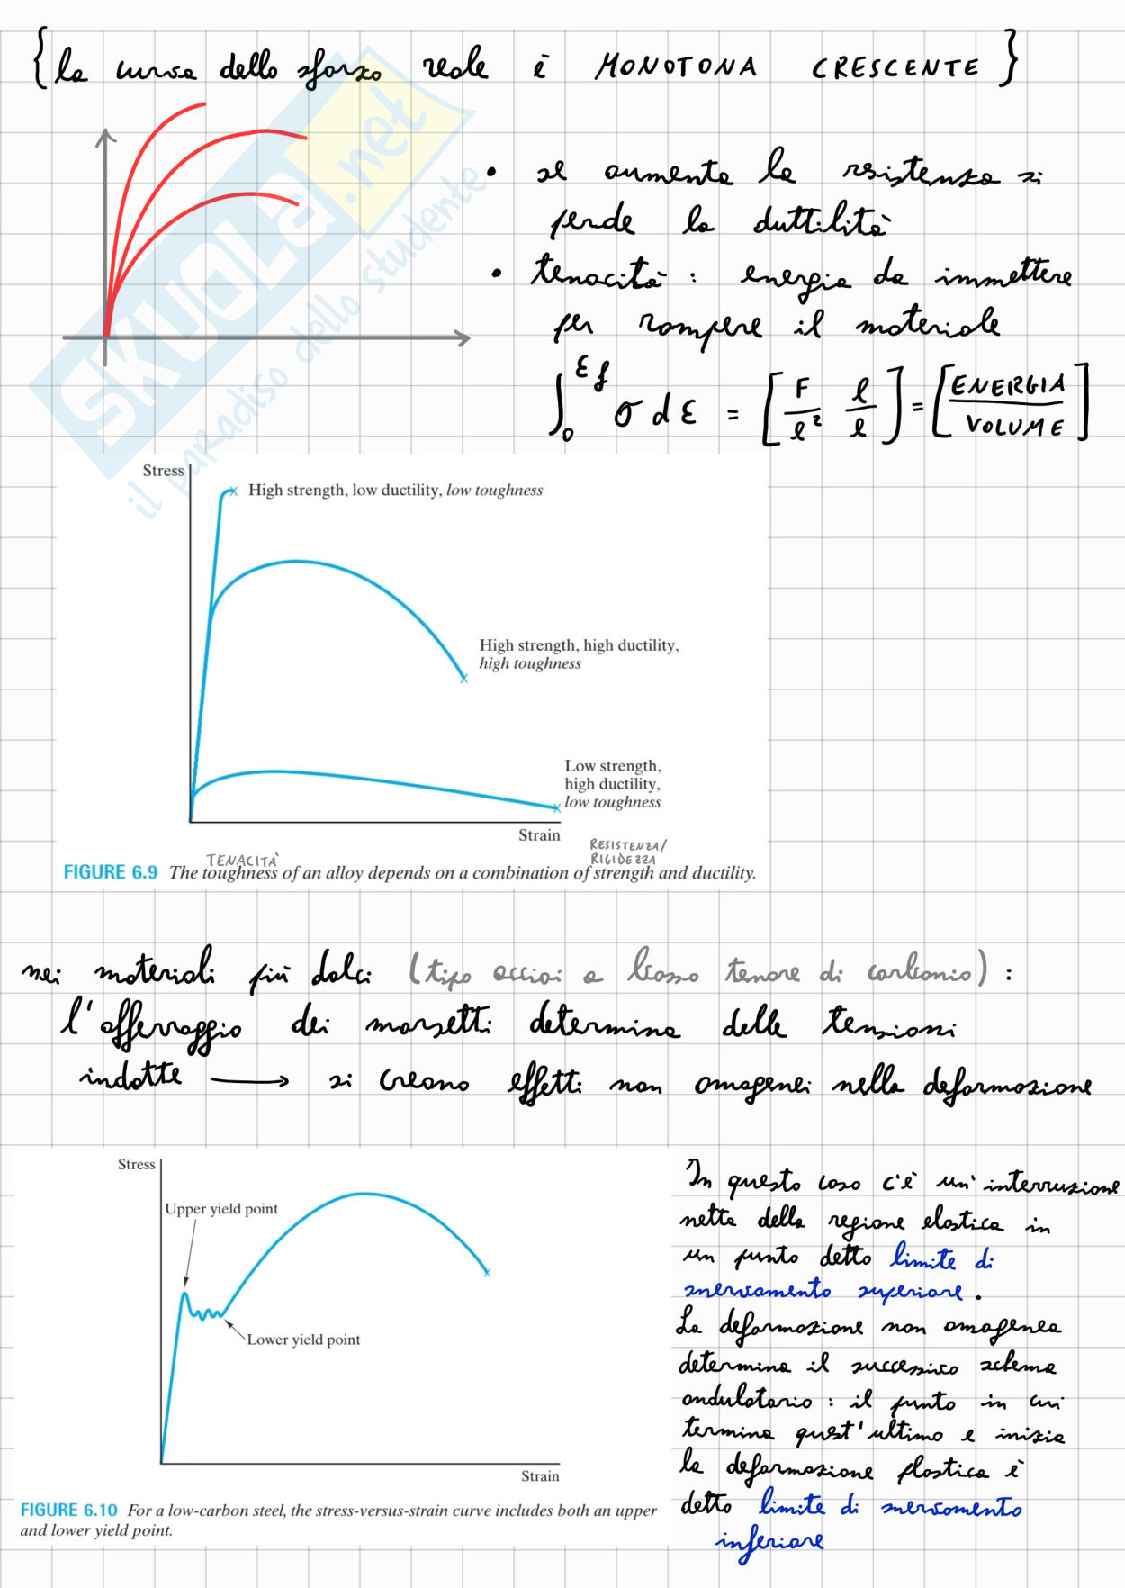 {la curva dello sforzo reale è MONOTONA CRESCENTE}
• se aumenta la resistenza si
perde la duttilità
• tenacità: energia da immettere
per rompere il materiale
∫₀^εf σ dε = [F/l² l/l] = [ENERGIA/VOLUME]
SKUOLA.net
il paradiso dello studente
Stress
High strength, low ductility, low toughness
High strength, high ductility,
high toughness
Low strength,
high ductility,
low toughness
Strain
TENACITÀ
RESISTENZA/
RIGIDEZZA
FIGURE 6.9 The toughness of an alloy depends on a combination of strength and ductility.
nei materiali più dolci (tipo acciai a basso tenore di carbonio):
l'afferraggio dei morsetti determina delle tensioni
indotte → si creano effetti non omogenei nella deformazione
Stress
Upper yield point
Lower yield point
Strain
FIGURE 6.10 For a low-carbon steel, the stress-versus-strain curve includes both an upper
and lower yield point.
In questo caso c'è un'interruzione
netta della regione elastica in
un punto detto limite di
snervamento superiore.
La deformazione non omogenea
determina il successivo schema
ondulatorio: il punto in cui
termina quest'ultimo e inizia
la deformazione plastica è
detto limite di snervamento
inferiore